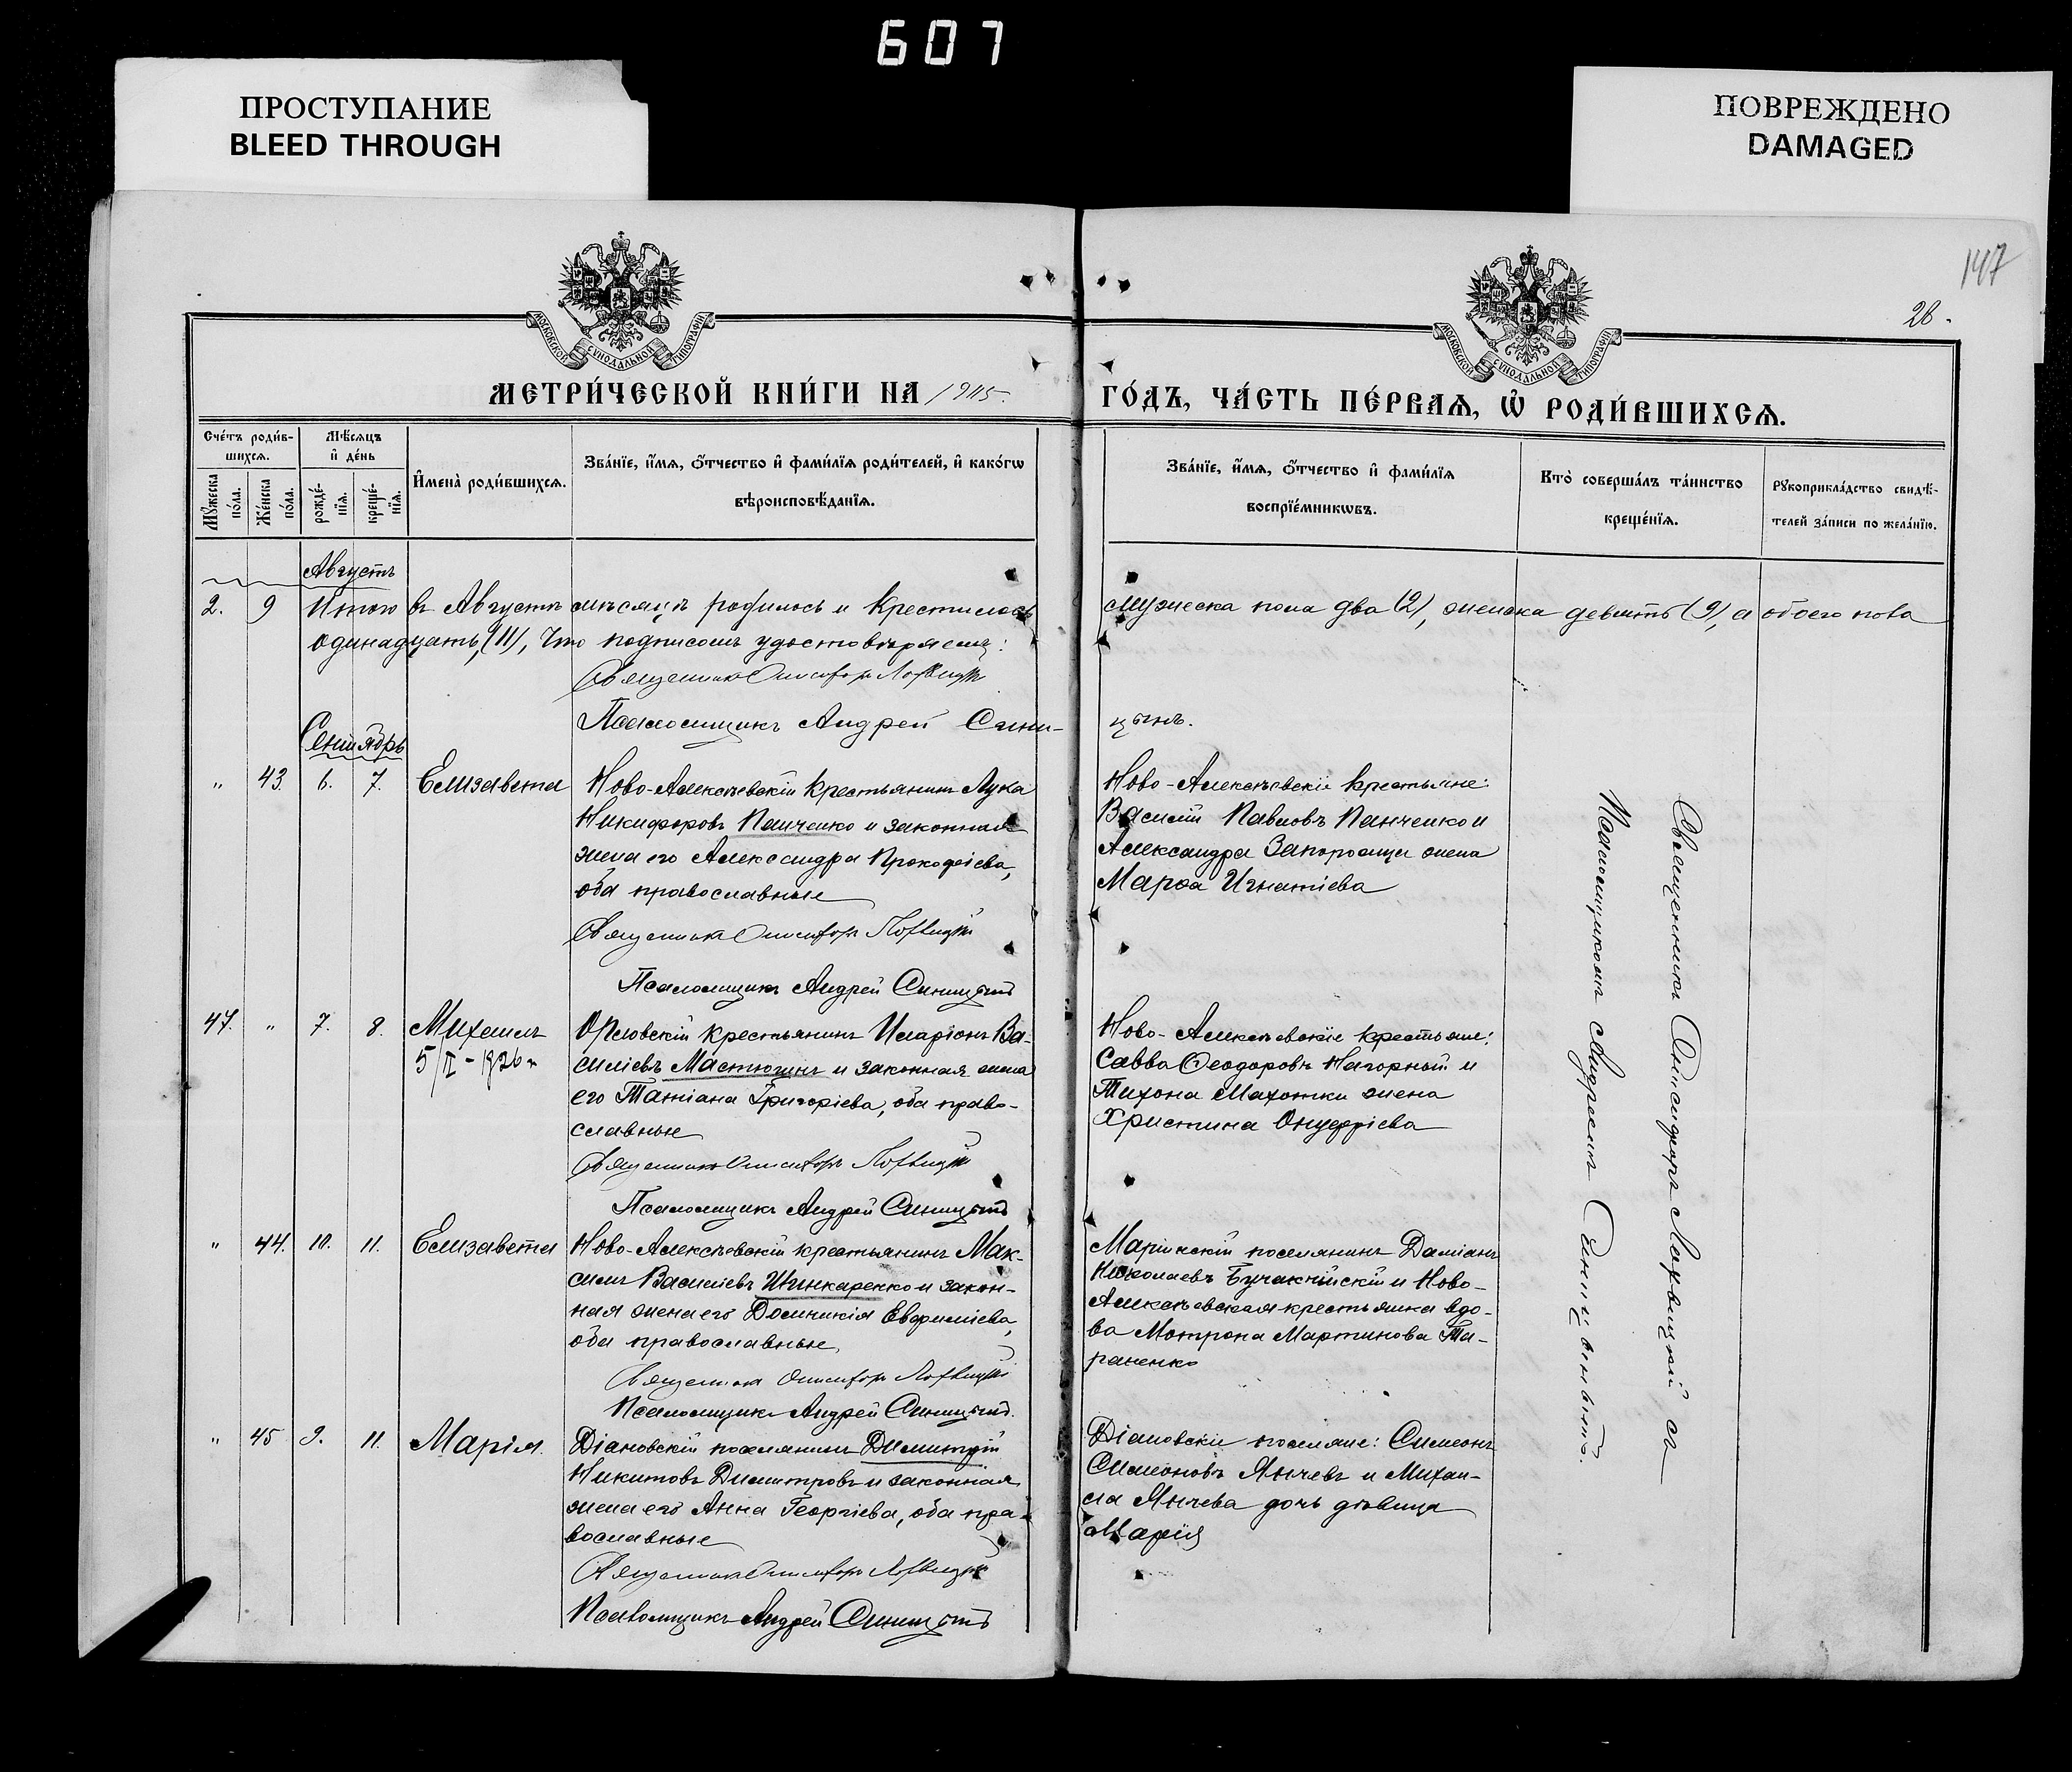 607
ПРОСТУПАНИЕ
BLEED THROUGH
ПОВРЕЖДЕНО
DAMAGED
147
26.
МОСКОВСКОЙ СУНОДАЛЬНОЙ ТИПОГРАФІИ
МОСКОВСКОЙ СУНОДАЛЬНОЙ ТИПОГРАФІИ
МЕТРИ́ЧЕСКОЙ КНИ́ГИ НА 1915.
ГО́ДЪ, ЧА́СТЬ ПЕ́РВАѦ, Ѡ РОДИ́ВШИХСѦ.
Сче́тъ роди́вшихсѧ.
Мѣ́сѧцъ и҆ де́нь
Мꙋ́жеска по́ла.
Же́нска по́ла.
рожде́нїѧ.
креще́нїѧ.
И҆мена̀ роди́вшихсѧ.
Зва́нїе, и҆́мѧ, ѻ҆́тчество и҆ фами́лїѧ роди́телей, и҆ како́гѡ
вѣроисповѣ́данїѧ.
Зва́нїе, и҆́мѧ, ѻ҆́тчество и҆ фами́лїѧ
воспрїе́мникѡвъ.
Кто̀ соверша́лъ та́инство
креще́нїѧ.
Рꙋкоприкла́дство свидѣ́-
телей за́писи по жела́нїю.
Августъ
2. 9 Итого въ Августѣ мѣсяцѣ родилось и крестилось мужеска пола два (2), женска девять (9), а обоего пола
одинадцать (11), что подписомъ удостовѣряемъ:
Священникъ Онисифоръ Лохвицкій
Псаломщикъ Андрей Сини-
цынъ.
Сентябрь
" 43. 6. 7. Елизавета
Ново-Алексѣевскій крестьянинъ Лука
Никифоровъ Панченко и законная
жена его Александра Прокофіева,
оба православные
Священникъ Онисифоръ Лохвицкій
Псаломщикъ Андрей Синицынъ
Ново-Алексѣевскіе крестьяне:
Василій Павловъ Панченко и
Александра Запорожца жена
Марѳа Игнатіева
47. " 7. 8. Михаилъ
5/II – 1926 г
Орловскій крестьянинъ Иларіонъ Ва-
силіевъ Мастюгинъ и законная жена
его Татіана Григоріева, оба право-
славные
Священникъ Онисифоръ Лохвицкій
Псаломщикъ Андрей Синицынъ
Ново-Алексѣевскіе крестьяне:
Савва Ѳеодоровъ Нагорный и
Тихона Махотки жена
Христина Онуфріева
" 44. 10. 11. Елизавета
Ново-Алексѣевскій крестьянинъ Мак-
симъ Василіевъ Шинкаренко и закон-
ная жена его Домникія Евфиміева,
оба православные,
Священникъ Онисифоръ Лохвицкій
Псаломщикъ Андрей Синицынъ.
Маріинскій поселянинъ Даміанъ
Николаевъ Бучакчійскій и Ново-
Алексѣевская крестьянка вдо-
ва Мотрона Мартинова Та-
раненко
" 45 9. 11. Марія.
Діановскій поселянинъ Димитрій
Никитовъ Димитровъ и законная
жена его Анна Георгіева, оба пра-
вославные
Священникъ Онисифоръ Лохвицкій
Псаломщикъ Андрей Синицынъ
Діановскіе поселяне: Симеонъ
Симеоновъ Янчевъ и Михаи-
ла Янчева дочь дѣвица
Марія
Священникъ Онисифоръ Лохвицкій съ
Псаломщикомъ Андреемъ Синицынымъ.